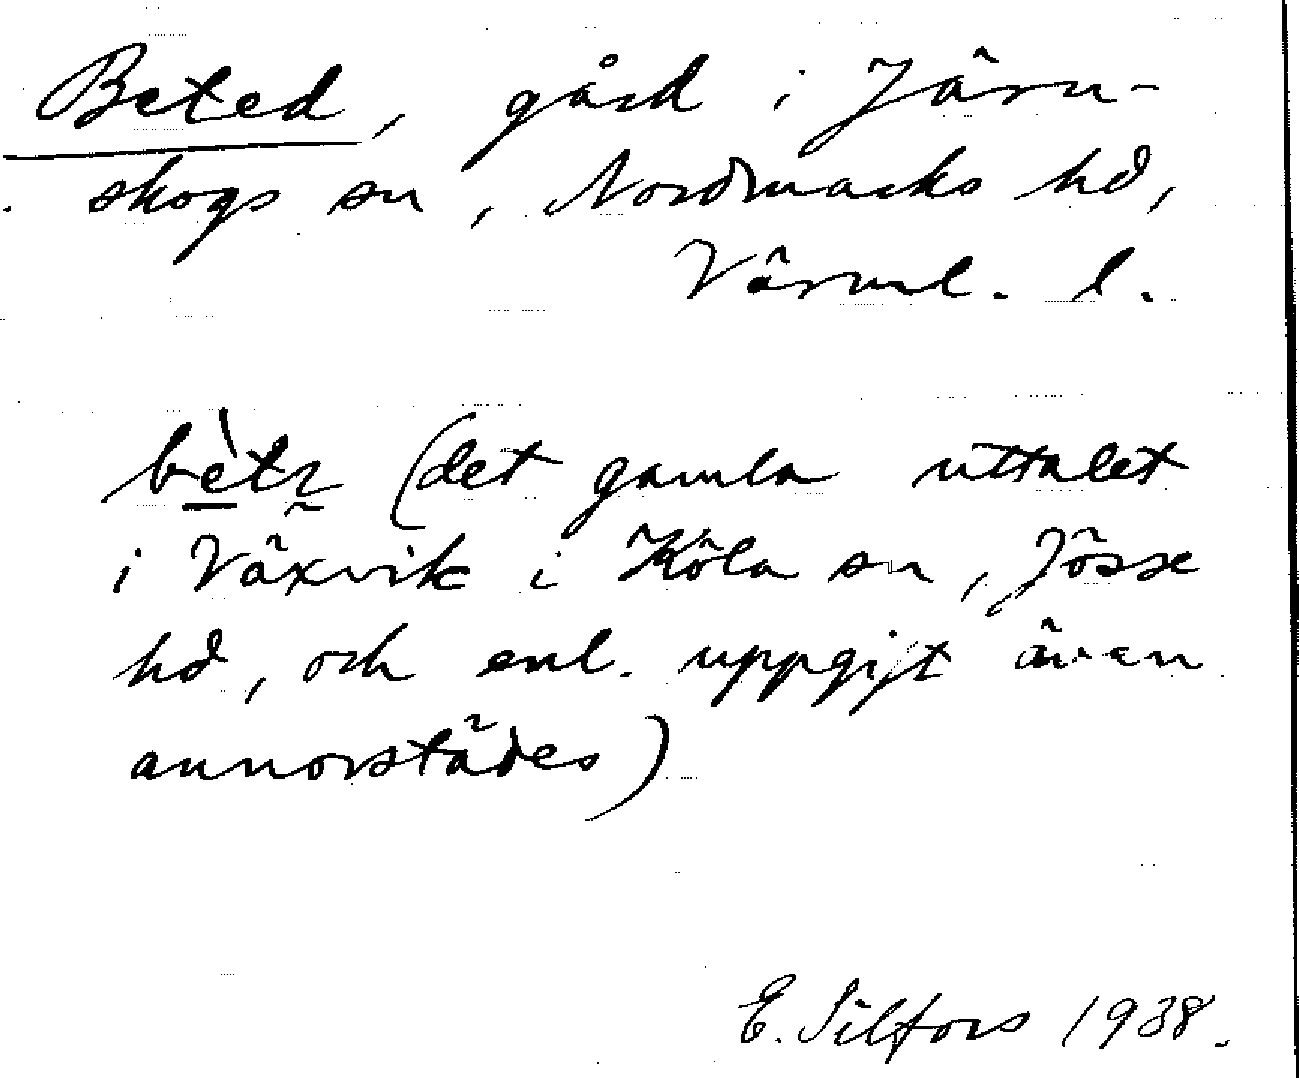 Beted, gård i Järn-
skogs sn, Nordmarks hd,
Värml. l.
(det gamla uttalet
i Växvik i Köla sn, Jösse
hd, och enl. uppgift även
annorstädes)
E. Silfors 1938.